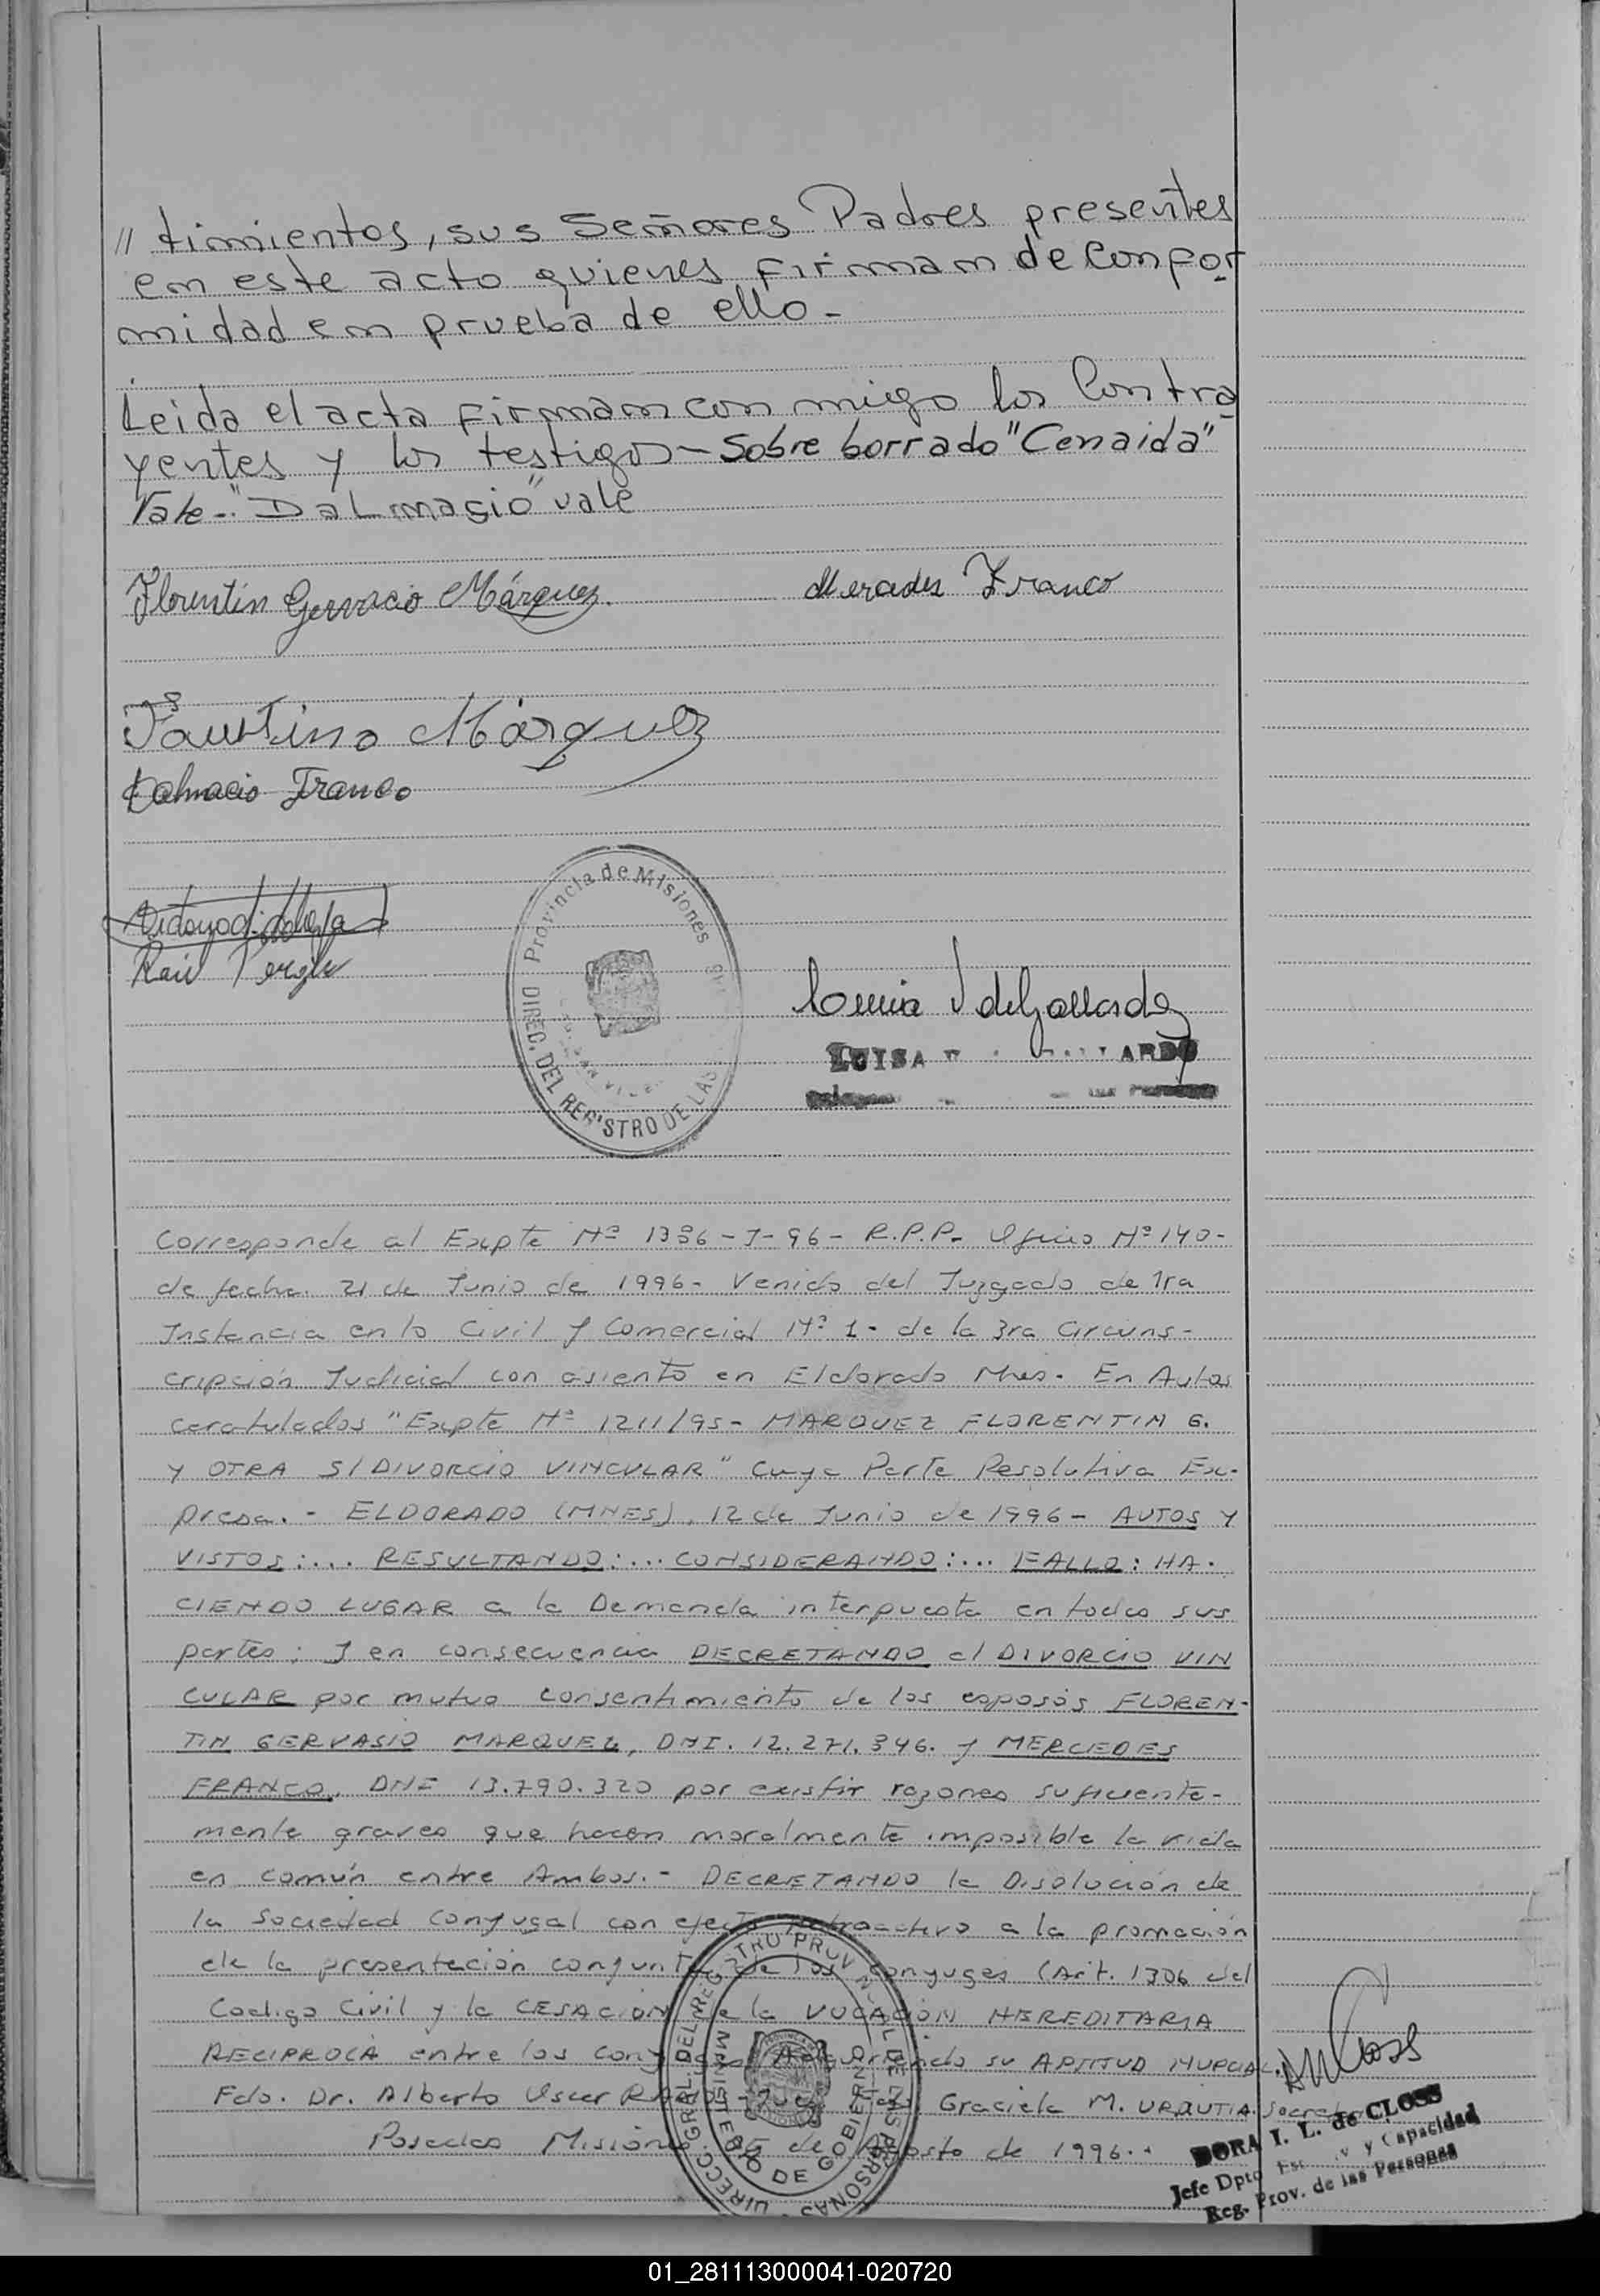 // timientos, sus Señores Padres presentes
en este acto quienes firman de Confor
midad en prueba de ello -
Leida el acta firman con migo los Contra
yentes y los testigos - Sobre borrado "Cenaida"
Vale - "Dalmacio" vale
Florentin Gervacio Márquez. Mercedes Franco
Faustino Márquez
Dalmacio Franco
Raúl
Provincia de Misiones
DIREC. DEL REGISTRO DE LAS
LUISA ARDO
Corresponde al Expte Nº 1396-J-96- R.P.P. Oficio Nº 140-
de fecha 21 de Junio de 1996- Venido del Juzgado de 1ra
Instancia en lo Civil y Comercial Nº 1- de la 3ra Circuns-
cripción Judicial con asiento en Eldorado Mnes. En Autos
caratulados "Expte Nº 1211/95- MARQUEZ FLORENTIN G.
Y OTRA S/DIVORCIO VINCULAR" Cuya Parte Resolutiva Ex-
presa. - ELDORADO (MNES), 12 de Junio de 1996- AUTOS Y
VISTOS:... RESULTANDO:... CONSIDERANDO:... FALLO: HA-
CIENDO LUGAR a la Demanda interpuesta en todas sus
partes; y en consecuencia DECRETANDO el DIVORCIO VIN
CULAR por mutuo consentimiento de los esposos FLOREN-
TIN GERVASIO MARQUEZ, DNI. 12.271.346. y MERCEDES
FRANCO, DNI 13.790.320 por existir razones suficiente-
mente graves que hacen moralmente imposible la vida
en común entre Ambos. - DECRETANDO la Disolución de
la Sociedad Conyugal con efecto Retroactivo a la promoción
de la presentación conjunta de los conyuges (Art. 1306 del
Codigo Civil y la CESACION de la VOCACION HEREDITARIA
RECIPROCA entre los conyuges Adquiriendo su APTITUD NUPCIAL.
Fdo. Dr. Alberto Oscar Juez Graciela M. URRUTIA Secretaria
Posadas Misiones, de Agosto de 1996.-
DIRECC. GRAL DEL REGISTRO PROVINCIAL DE LAS PERSONAS
MINISTERIO DE GOBIERNO
DORA I. L. de CLOSS
Jefe Dpto y Capacidad
Reg. Prov. de las Personas
01_281113000041-020720